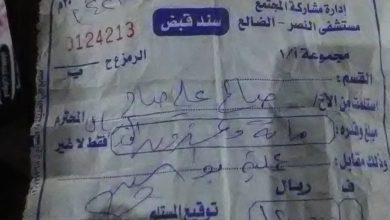 إدارة مشاركة المجتمع
مستشفى النصر - الضالع
سند قبض
0124213
مجموعة ١/١
الرمز ح ب
القسم :
استلمت من الأخ/ صالح علي صالح المحترم
مبلغ وقدره : مائة وعشرون ألف فقط لا غير
وذلك مقابل : عملية
ف ريال
توقيع المستلم